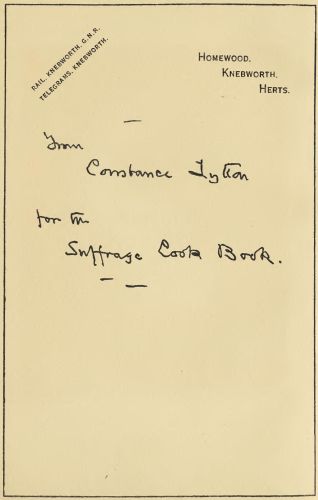 RAIL. KNEBWORTH. G.N.R.
TELEGRAMS. KNEBWORTH.
HOMEWOOD.
KNEBWORTH.
HERTS.
From
Constance Lytton
for the
Suffrage Cook Book.